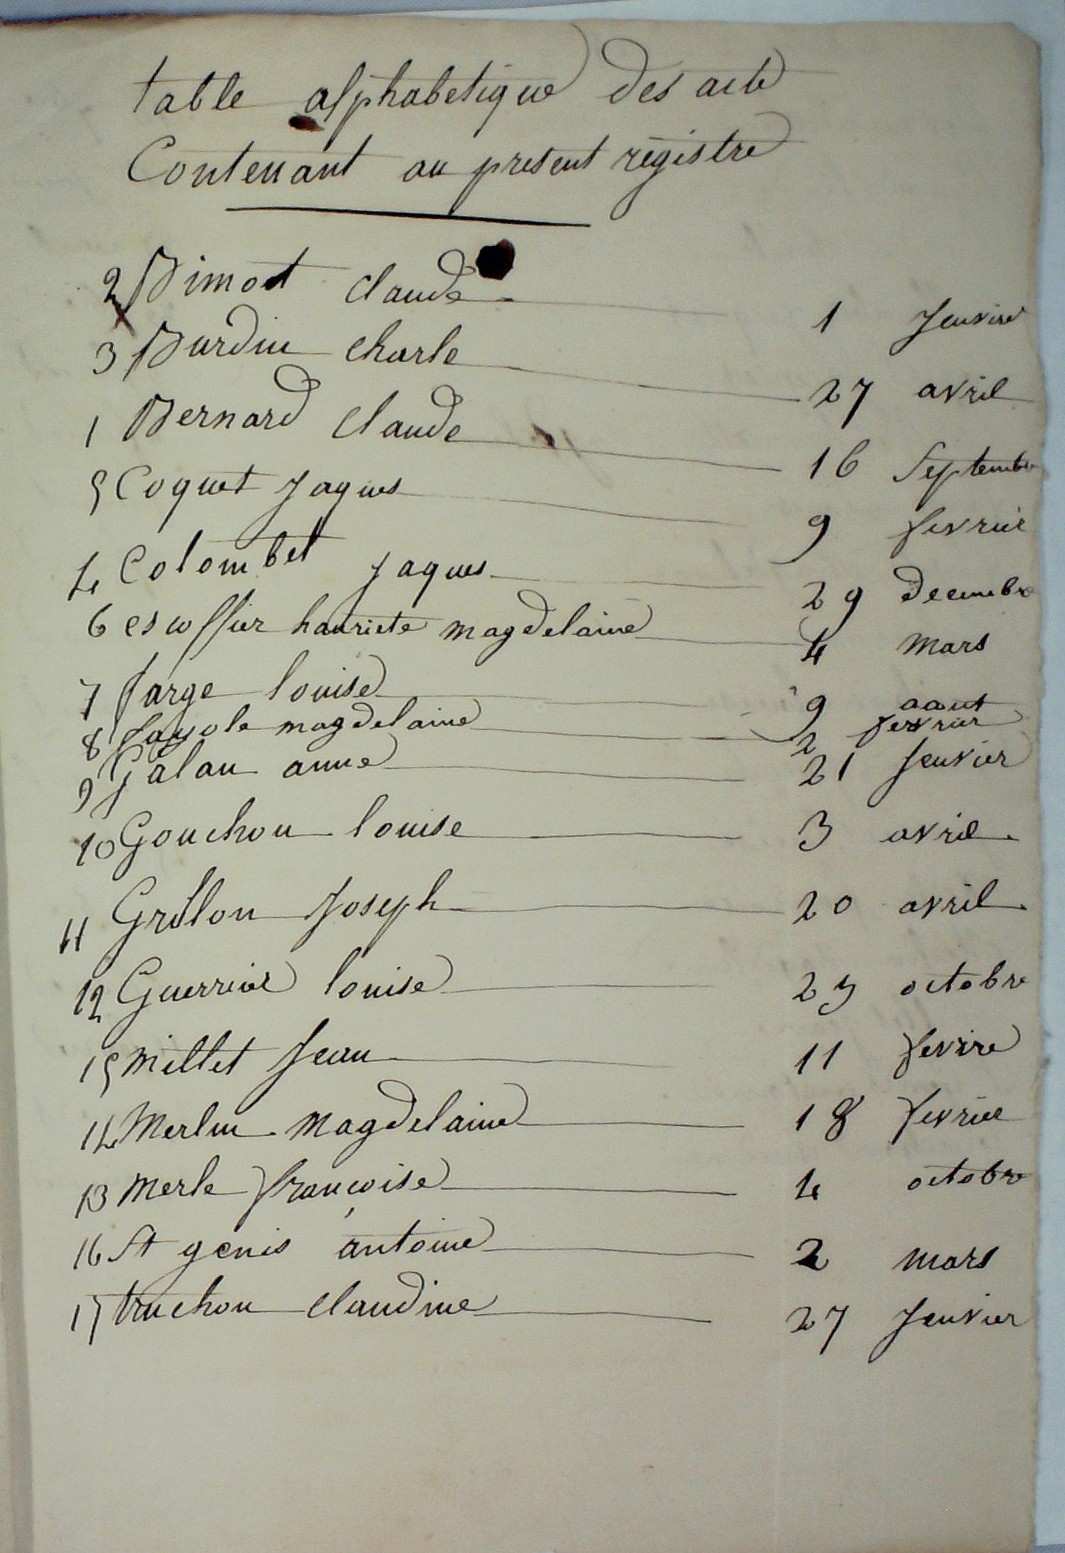 table alphabetique des acte
Contenant au present registre
2 Bimot claude 1 Jenvire
3 Burdin charle 27 avril
1 Bernard claude 16 Septembre
5 Coquet Jaques 9 fevrier
4 Colombet Jaques 29 decembre
6 escoffier hauriete magdelaine 4 mars
7 farge louise 9 aout
8 fayole magdelaine 2 fevrier
9 Galan anne 21 Jenvier
10 Gouchon louise 3 avril
11 Grillon Joseph 20 avril
12 Guerrier louise 23 octobre
15 Millet Jean 11 fevire
14 Merlin magdelaine 18 fevrier
13 Merle françoise 4 octobre
16 St genis antoine 2 mars
17 truchon claudine 27 Jenvier